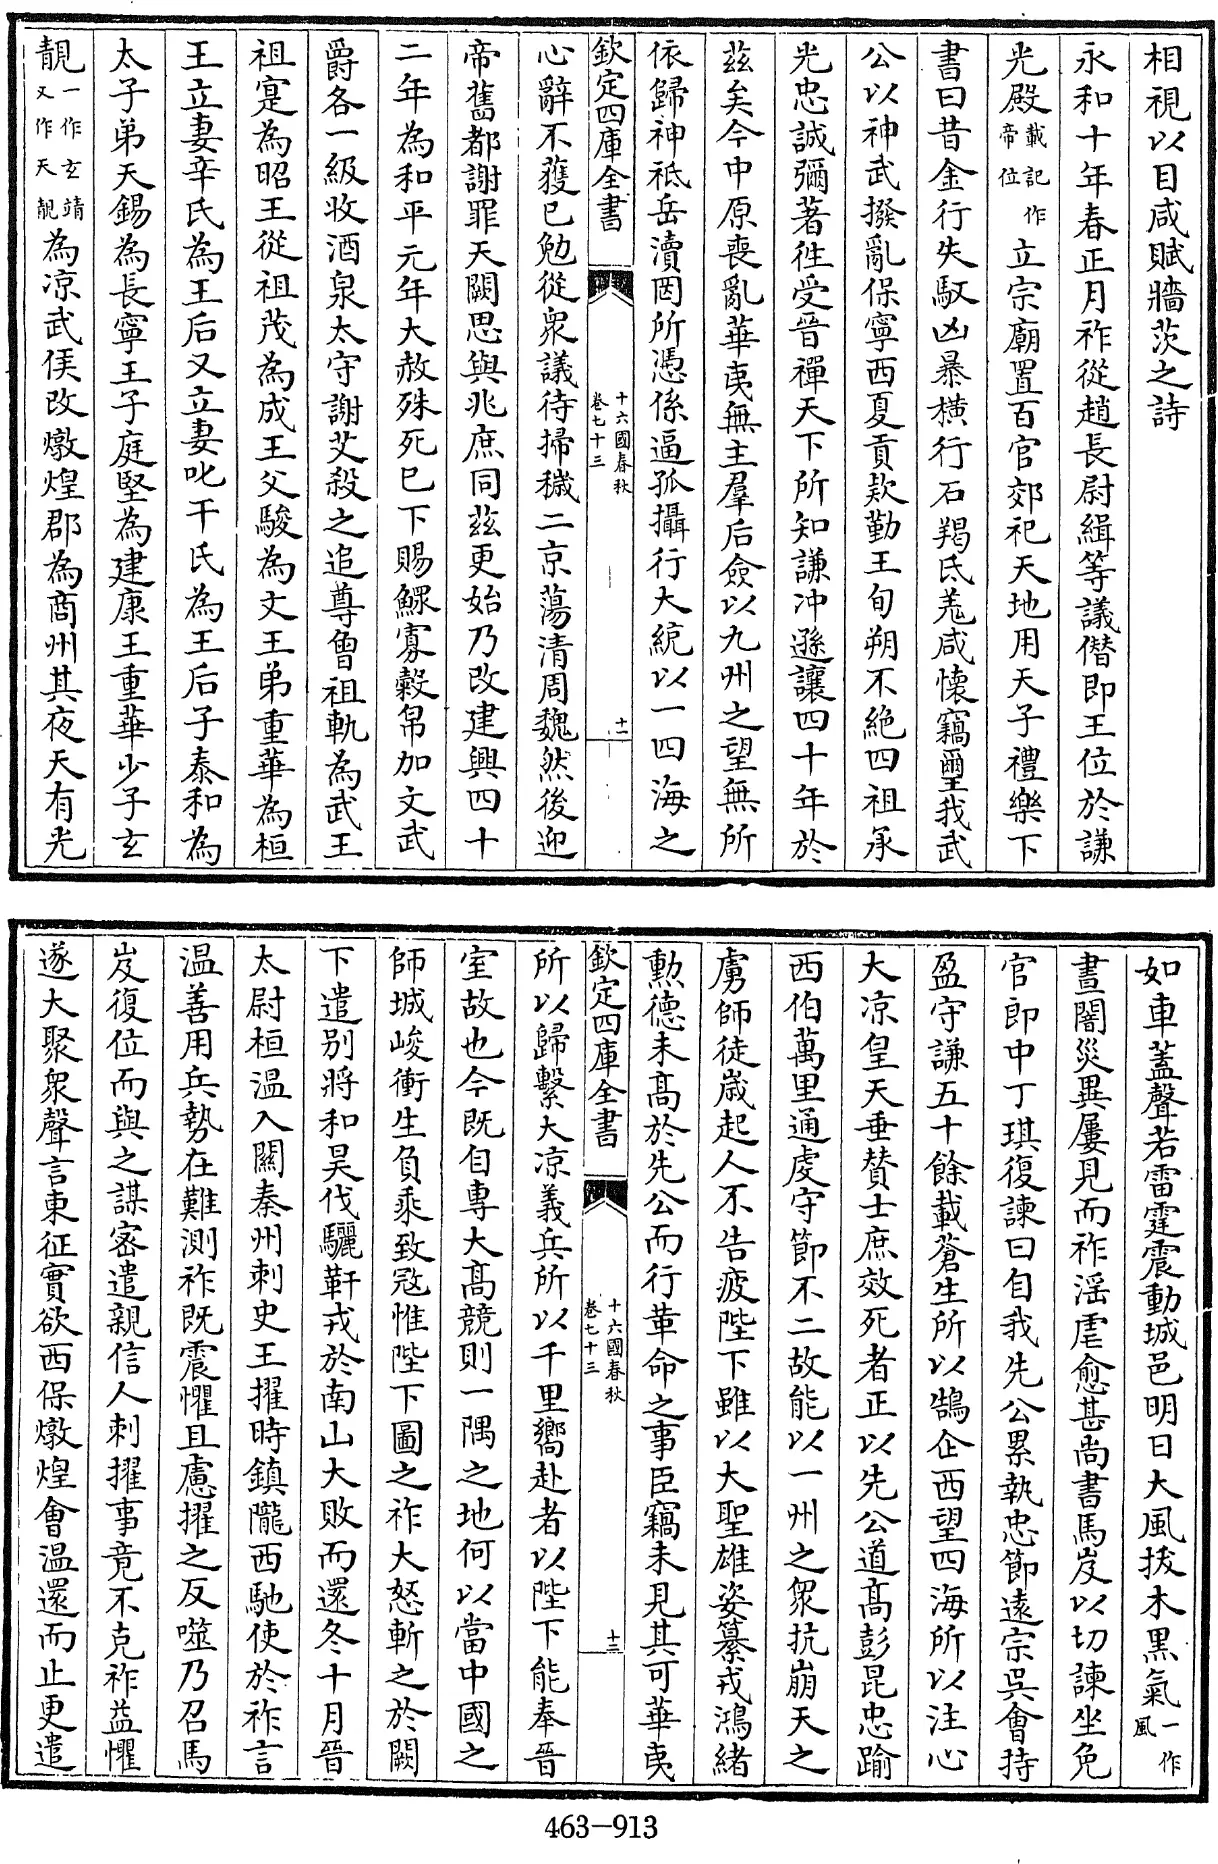 相視以目咸賦牆茨之詩
永和十年春正月祚從趙長尉緝等議僭即王位於謙
光殿載記作帝位立宗廟置百官郊祀天地用天子禮樂下
書曰昔金行失馭凶暴橫行石羯氐羌咸懷竊璽我武
公以神武撥亂保寧西夏貢款勤王旬朔不絶四祖承
光忠誠彌著徃受晉禪天下所知謙沖遜讓四十年於
兹矣今中原喪亂華夷無主羣后僉以九州之望無所
依歸神祗岳瀆罔所憑係逼孤攝行大統以一四海之
欽定四庫全書
十六國春秋
卷七十三
十二
心辭不獲已勉從衆議待掃穢二京蕩清周魏然後迎
帝舊都謝罪天闕思與兆庶同兹更始乃改建興四十
二年為和平元年大赦殊死已下賜鰥寡穀帛加文武
爵各一級收酒泉太守謝艾殺之追尊曾祖軌為武王
祖寔為昭王從祖茂為成王父駿為文王弟重華為桓
王立妻辛氏為王后又立妻叱干氏為王后子泰和為
太子弟天錫為長寧王子庭堅為建康王重華少子玄
靚一作玄靖又作天靚為凉武侯改燉煌郡為商州其夜天有光
如車蓋聲若雷霆震動城邑明日大風拔木黑氣一作風
晝闇災異屢見而祚淫虐愈甚尚書馬岌以切諫坐免
官郎中丁琪復諫曰自我先公累執忠節遠宗吳會持
盈守謙五十餘載蒼生所以鵠企西望四海所以注心
大凉皇天垂贊士庶效死者正以先公道高彭昆忠踰
西伯萬里通虔守節不二故能以一州之衆抗崩天之
虜師徒歲起人不告疲陛下雖以大聖雄姿纂戎鴻緒
勲德未高於先公而行革命之事臣竊未見其可華夷
欽定四庫全書
十六國春秋
卷七十三
十三
所以歸繫大凉義兵所以千里嚮赴者以陛下能奉晉
室故也今既自專大高競則一隅之地何以當中國之
師城峻衝生負乘致宼惟陛下圖之祚大怒斬之於闕
下遣别將和昊伐驪靬戎於南山大敗而還冬十月晉
太尉桓温入關秦州刺史王擢時鎮隴西馳使於祚言
温善用兵勢在難測祚既震懼且慮擢之反噬乃召馬
岌復位而與之謀宻遣親信人刺擢事竟不克祚益懼
遂大聚衆聲言東征實欲西保燉煌會温還而止更遣
463-913